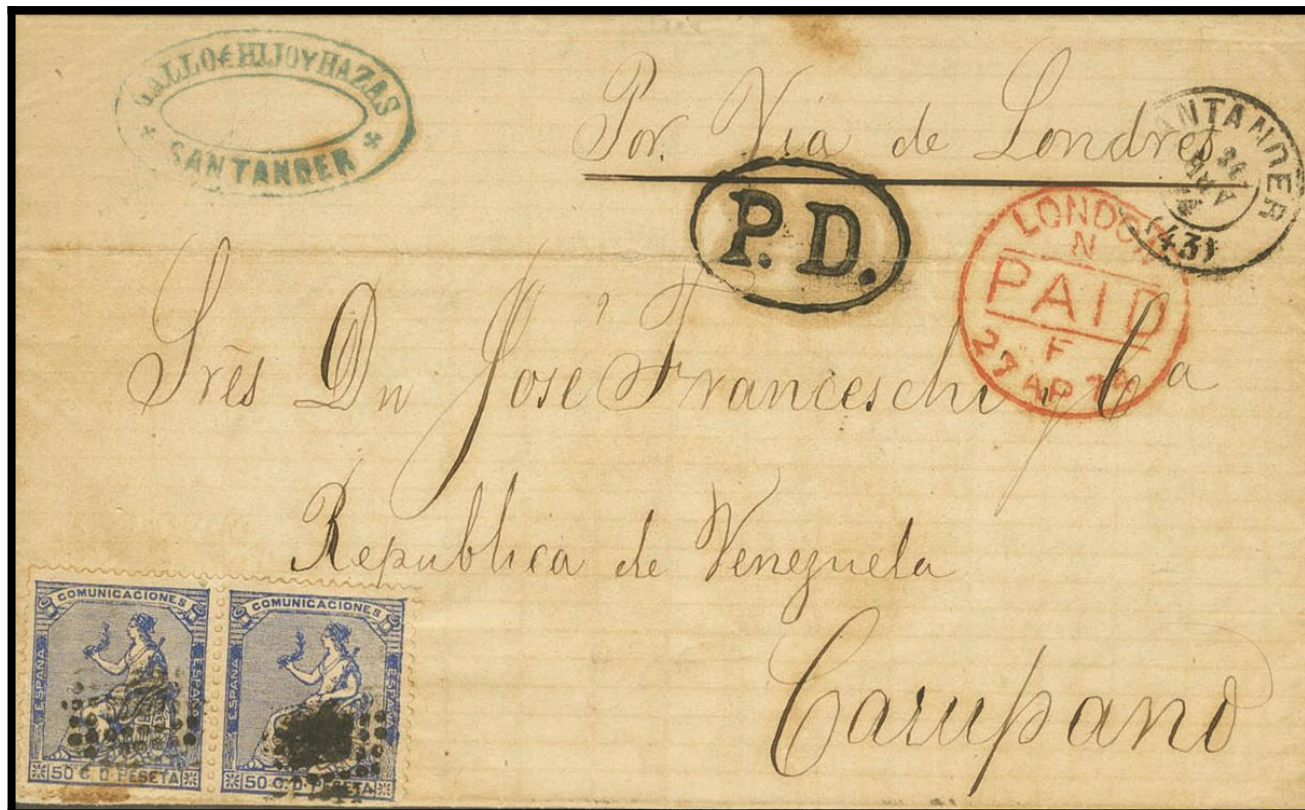 GALLO é HIJO Y HAZAS
SANTANDER
Por Via de Londres
SANTANDER
ABR
(43)
P.D.
LONDON
N
PAID
F
27 AP 74
Srēs Dn José Franceschi y Ca
Republica de Venezuela
Carupano
COMUNICACIONES
ESPAÑA
ESPAÑA
50 C. D. PESETA
COMUNICACIONES
ESPAÑA
ESPAÑA
50 C. D. PESETA